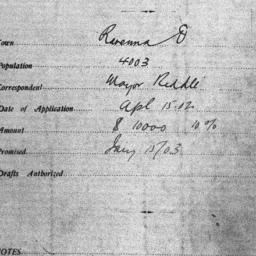 Town Ravenna O
Population 4003
Correspondent Mayor Riddle
Date of Application Apl 15.02.
Amount $ 10000 10%
Promised. Jany 15/03
Drafts Authorized
NOTES